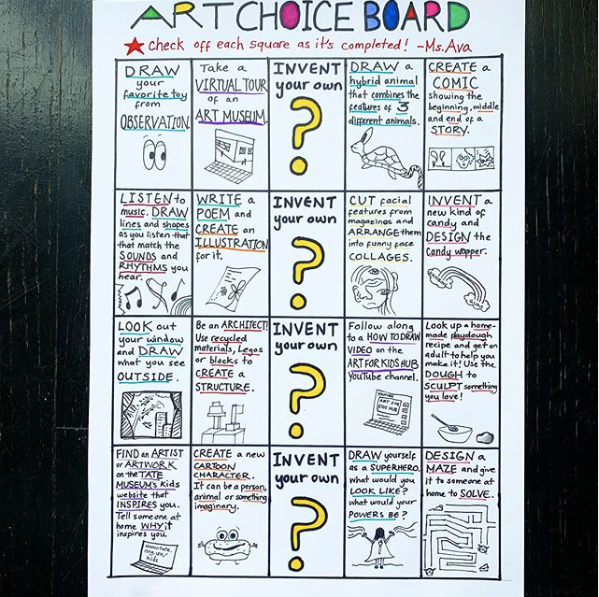 ART CHOICE BOARD
check off each square as it's completed! -Ms. Ava
DRAW
your
favorite toy
from
OBSERVATION.
Take a
VIRTUAL TOUR
of an
ART MUSEUM.
INVENT
your own
?
DRAW a
hybrid animal
that combines the
features of 3
different animals.
CREATE a
COMIC
showing the
beginning, middle
and end of a
STORY.
LISTEN to
music. DRAW
lines and shapes
as you listen that
that match the
SOUNDS and
RHYTHMS you
hear.
WRITE a
POEM and
CREATE an
ILLUSTRATION
for it.
INVENT
your own
?
CUT facial
features from
magazines and
ARRANGE them
into funny face
COLLAGES.
INVENT a
new kind of
candy and
DESIGN the
candy wrapper.
LOOK out
your window
and DRAW
what you see
OUTSIDE.
Be an ARCHITECT!
Use recycled
materials, Legos
or blocks to
CREATE a
STRUCTURE.
INVENT
your own
?
Follow along
to a HOW TO DRAW
VIDEO on the
ART FOR KIDS HUB
YouTube channel.
YOUTUBE
ART FOR
KIDS HUB
Look up a home-
made playdough
recipe and get an
adult to help you
make it! Use the
DOUGH to
SCULPT something
you love!
FIND an ARTIST
or ARTWORK
on the TATE
MUSEUM's kids
website that
INSPIRES you.
Tell someone at
home WHY it
inspires you
www.tate.
org.uk/
kids
CREATE a new
CARTOON
CHARACTER.
It can be a person,
animal or something
imaginary.
INVENT
your own
?
DRAW yourself
as a SUPERHERO.
what would you
LOOK LIKE?
what would your
POWERS BE?
DESIGN a
MAZE and give
it to someone at
home to SOLVE.